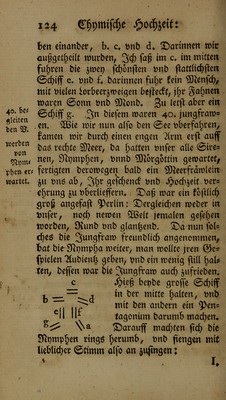 124 Chymische Hochzeit:
ben einander, b. c. vnd d. Darinnen wir
außgetheilt wurden, Jch saß im c. im mitten
fuhren die zwey schönsten vnd stattlichsten
Schiff e. vnd f. darinnen fuhr kein Mensch,
mit vielen Lorbeerzweigen besteckt, jhr Fahnen
waren Sonn vnd Mond. Zu letst aber ein
Schiff g. Jn diesem waren 40. jungfraw-
en. Wie wir nun also den See vberfahren,
kamen wir durch einen engen Arm erst auff
das rechte Meer, da hatten vnser alle Sire-
nen, Nymphen, vnnd Mörgöttin gewartet,
fertigten derowegen bald ein Meerfräwlein
zu vns ab, Jhr geschenck vnd Hochzeit ver-
ehrung zu vberlieffern. Daß war ein köstlich
groß angefast Perlin: Dergleichen weder in
vnser, noch newen Welt jemalen gesehen
worden, Rund vnd glanzend. Da nun sol-
ches die Jungfraw freundlich angenommen,
bat die Nympha weiter, man wollte jren Ge-
spielen Audientz geben, vnd ein wenig still hal-
ten, dessen war die Jungfraw auch zufrieden.
Hieß beyde grosse Schiff
in der mitte halten, vnd
mit den andern ein Pen-
tagonum darumb machen.
Darauff machten sich die
Nymphen rings herumb, vnd fiengen mit
lieblicher Stimm also an zusingen:
I.
40. be
gleiten
den B.
werden
von
Nym
phen er
wartet.
c
b d
e || f
g